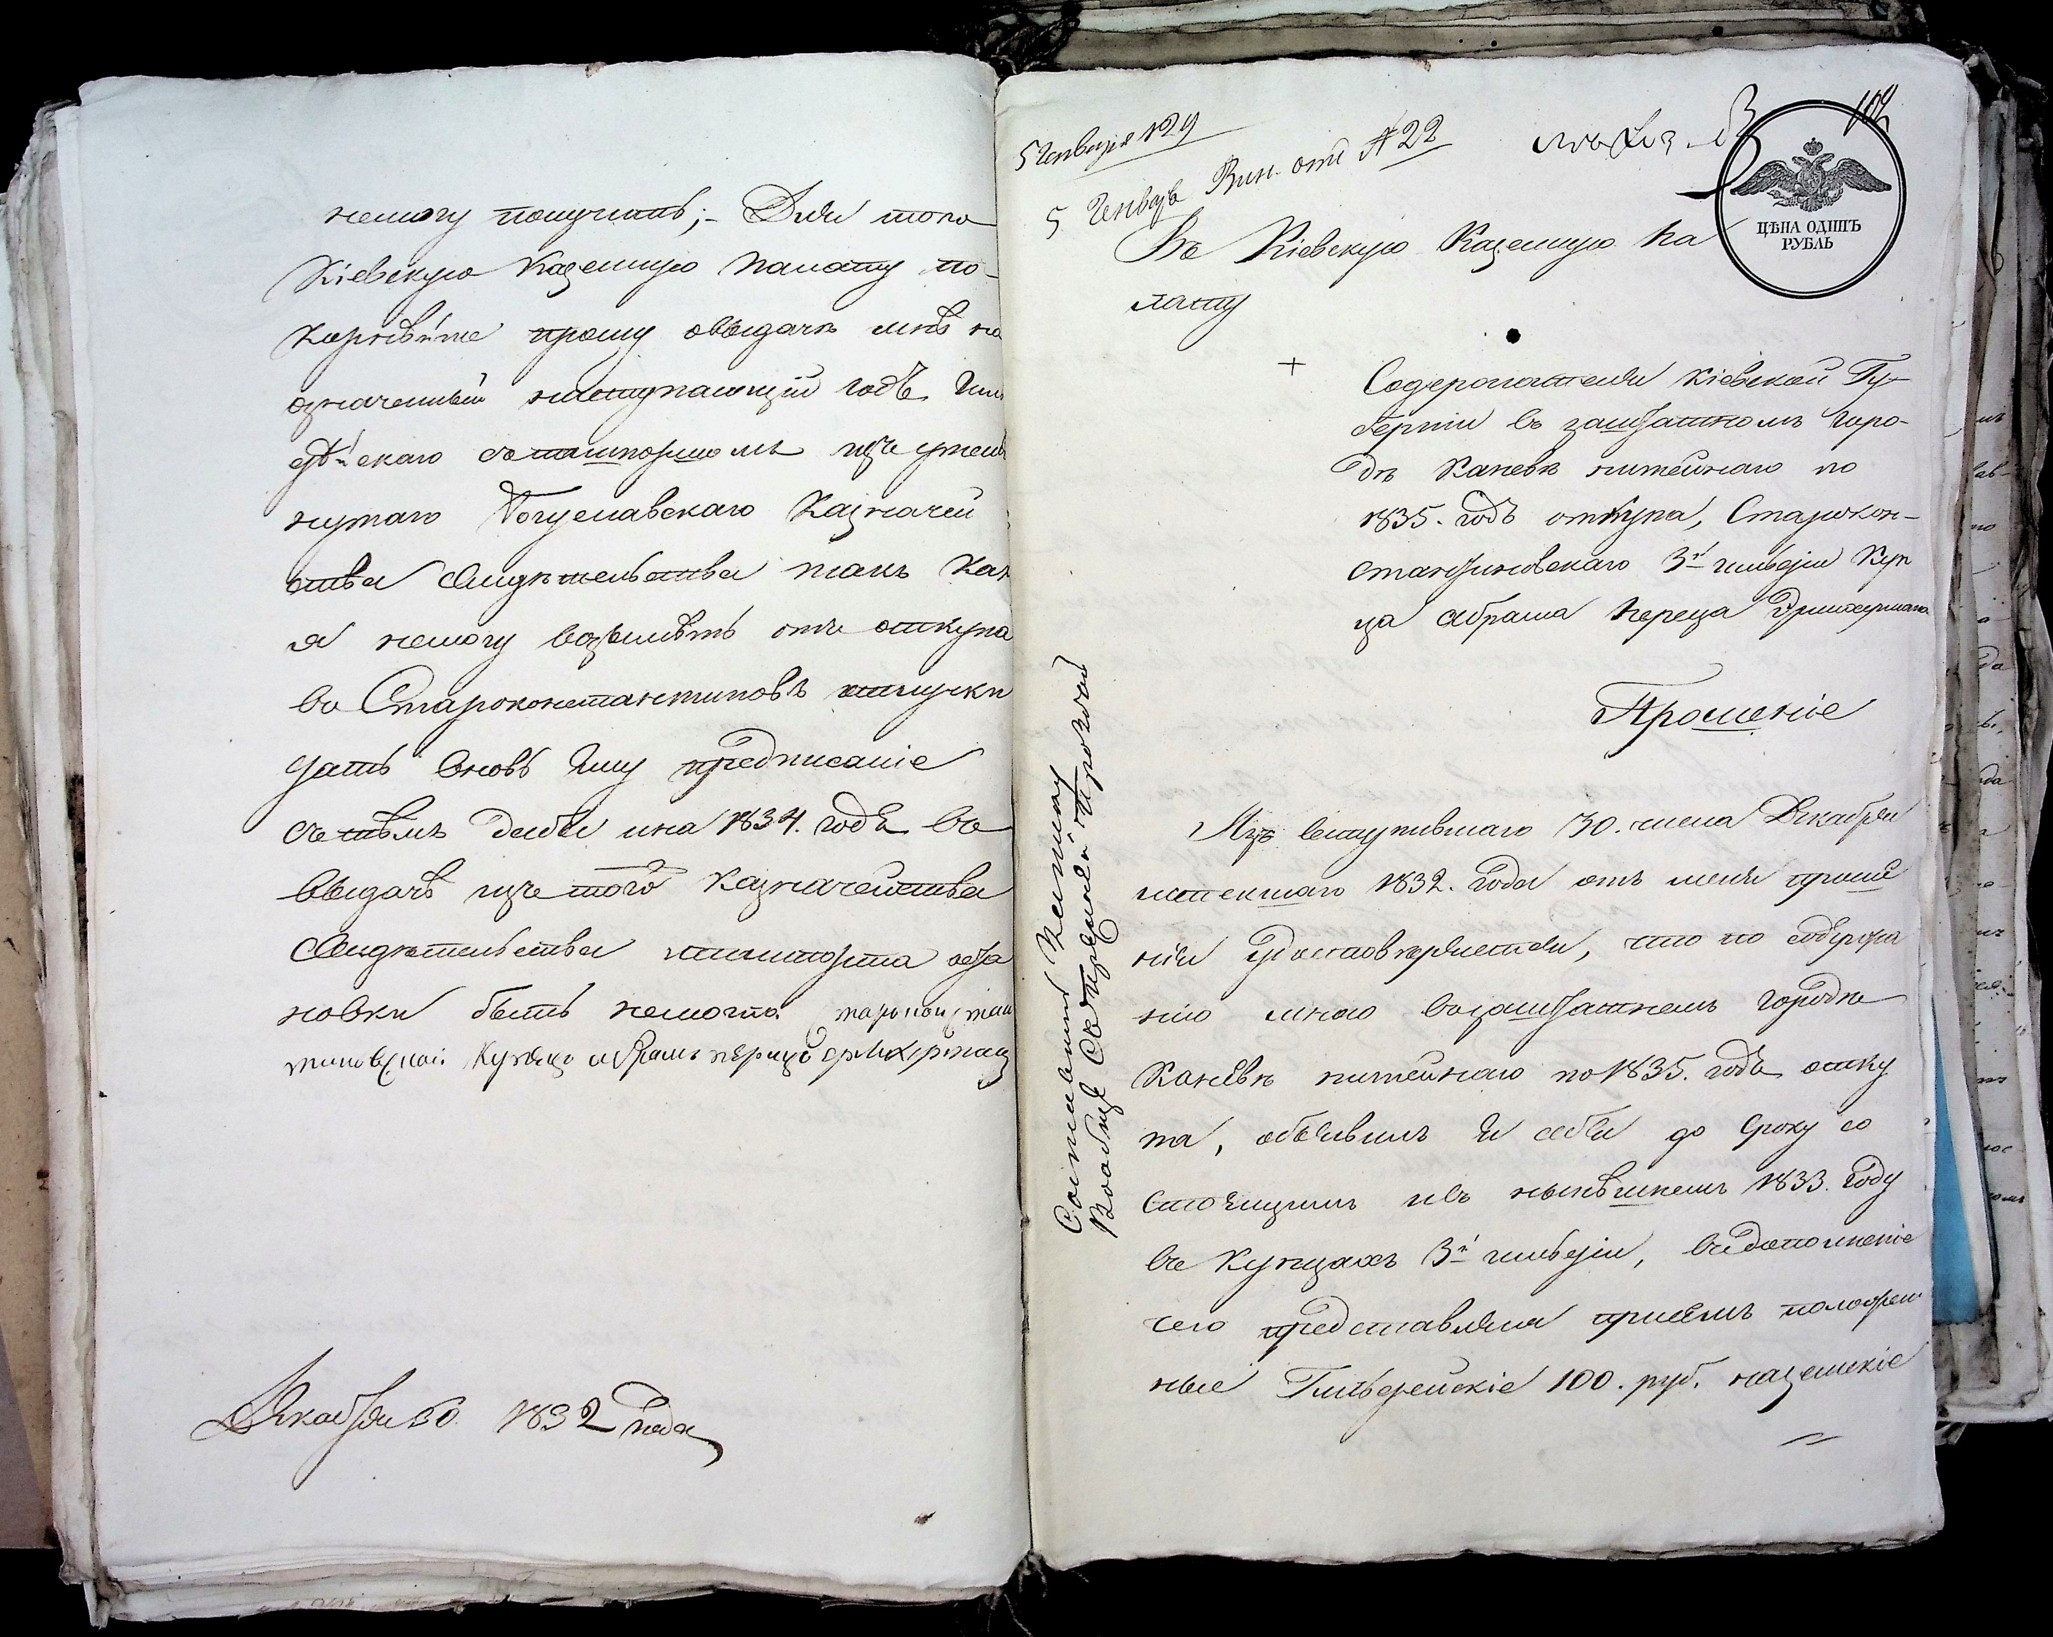 немогу получить;- Для того
Кіевскую Казенную палату по-
корнѣйше прошу овыдачѣ мнѣ на
означенный наступающій годъ Гиль
дѣйскаго
нутаго Богуславскаго Казначей
ства Свидѣтельства такъ как
я немогу возъимѣть отъ откупа
во Староконстантиновъ отлучки
дать вновъ Ему предписаніе
съ тѣмъ дабы и на 1834. годъ во
выдачѣ изъ того Казначейства
Свидѣтельства оста
новки быть немогло. Староконстан
тиновской Купецъ Абрамъ Перецъ
Декабря 30. 1832 года
5 Генваря 129
5 Генваря Вин. отд № 22
102
ЦѢНА ОДИНЪ
РУБЛЬ
Въ Кіевскую Казенную Па
лату
Содержателя Кіевской Гу-
берніи въ заштатномъ Горо-
дѣ Каневѣ питейнаго по
1835. годъ откупа, Старокон-
стантиновскаго 3й гильдіи Куп
ца Абрама Переца
Прошеніе
Изъ вступившаго 30. числа Декабря
истекшаго 1832. Года отъ меня проше
нія удостовѣряется, что по содержа
нію мною возаштатномъ Городѣ
Каневѣ питейнаго по 1835. годъ отку
па, объявилъ я себя до сроку со
стоящимъ и въ нынѣшнемъ 1833. Году
въ Купцахъ 3й гильдіи, въ дополненіе
чего представляя присемъ положен
ные Гильдейскіе 100. руб.